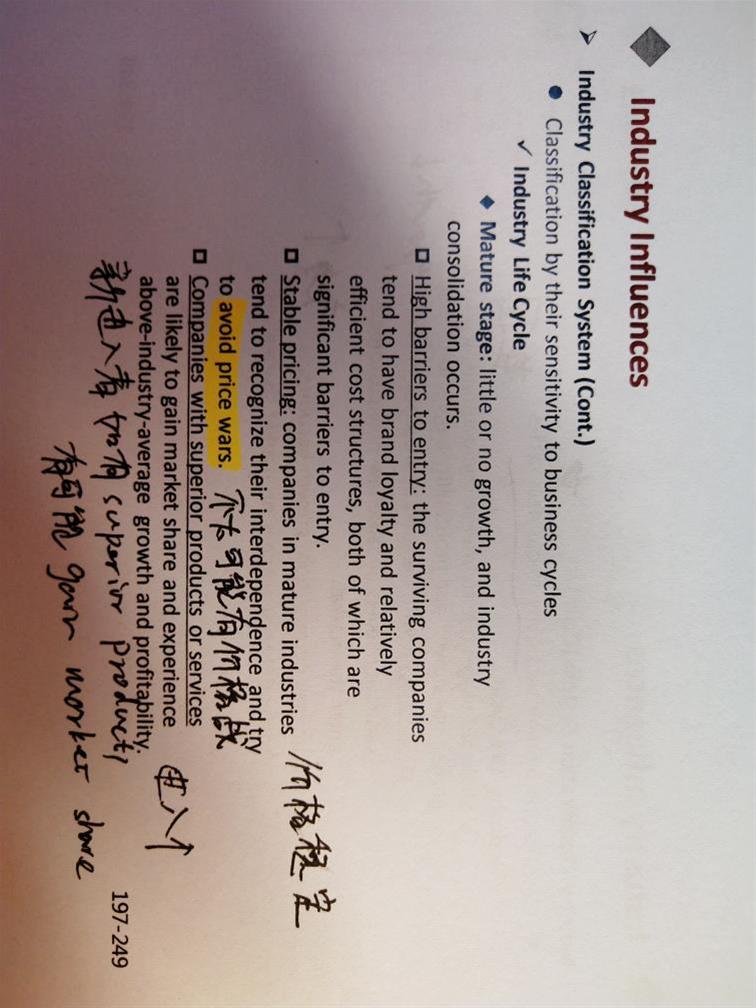 Industry Influences
➢ Industry Classification System (Cont.)
● Classification by their sensitivity to business cycles
✓ Industry Life Cycle
◆ Mature stage: little or no growth, and industry
consolidation occurs.
□ High barriers to entry: the surviving companies
tend to have brand loyalty and relatively
efficient cost structures, both of which are
significant barriers to entry.
□ Stable pricing: companies in mature industries 价格稳定
tend to recognize their interdependence and try
to avoid price wars. 不太可能有价格战
□ Companies with superior products or services
are likely to gain market share and experience
above-industry-average growth and profitability.
新进入者如有 superior product,
有可能 gain market share
197-249